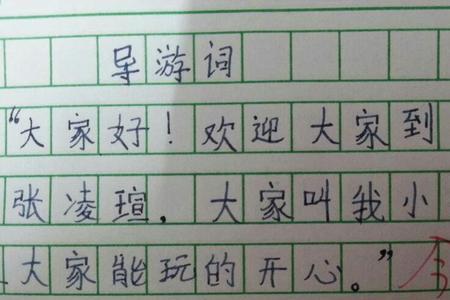 导游词
“大家好！欢迎大家到
张凌瑄，大家叫我小
大家能玩的开心。”